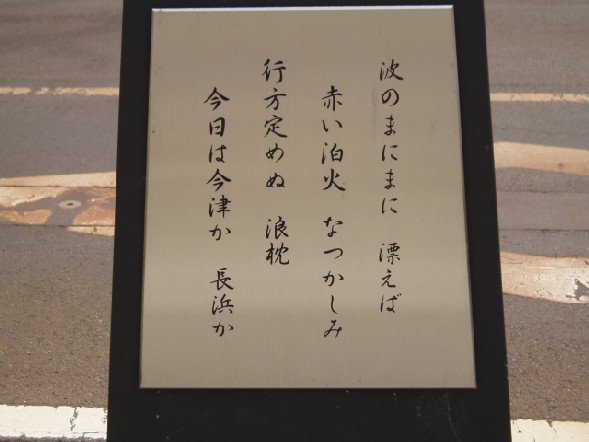 波のまにまに　漂えば
赤い泊火　なつかしみ
行方定めぬ　浪枕
今日は今津か　長浜か